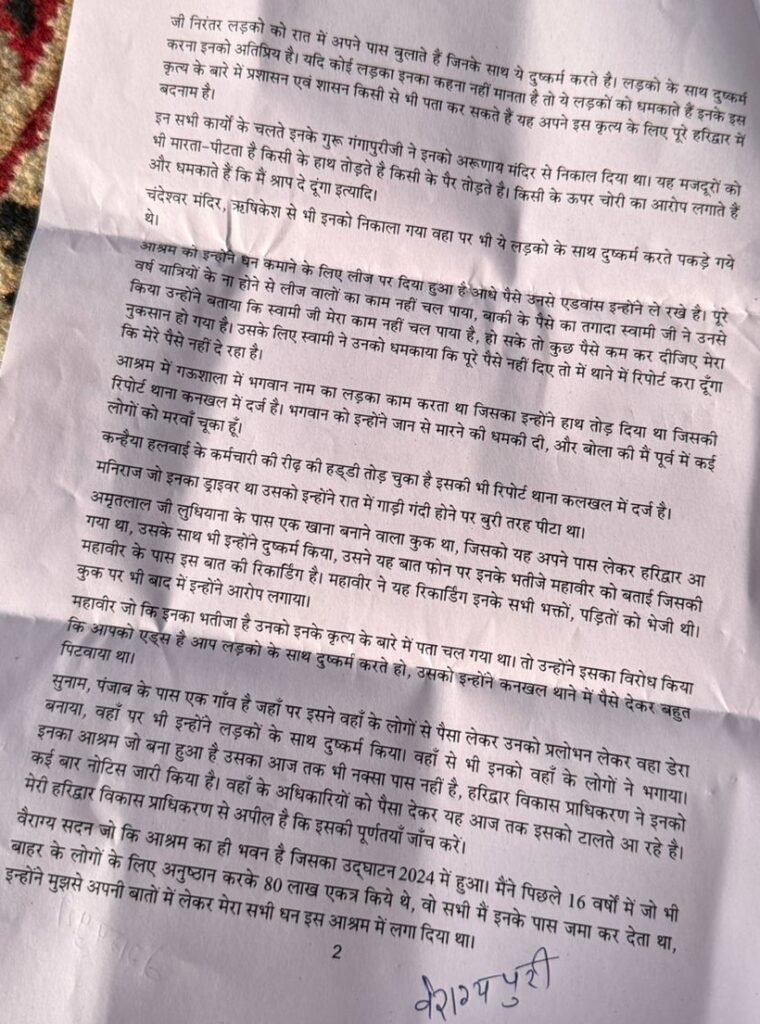 जी निरंतर लड़को को रात में अपने पास बुलाते हैं जिनके साथ ये दुष्कर्म करते है। लड़को के साथ दुष्कर्म
करना इनको अतिप्रिय है। यदि कोई लड़का इनका कहना नहीं मानता है तो ये लड़कों को धमकाते हैं इनके इस
कृत्य के बारे में प्रशासन एवं शासन किसी से भी पता कर सकते हैं यह अपने इस कृत्य के लिए पूरे हरिद्वार में
बदनाम है।
इन सभी कार्यो के चलते इनके गुरू गंगापुरीजी ने इनको अरूणाय मंदिर से निकाल दिया था। यह मजदूरों को
भी मारता-पीटता है किसी के हाथ तोड़ते है किसी के पैर तोड़ते है। किसी के ऊपर चोरी का आरोप लगाते हैं
और धमकाते हैं कि मै श्राप दे दूंगा इत्यादि।
चंदेश्वर मंदिर, ऋषिकेश से भी इनको निकाला गया वहा पर भी ये लड़को के साथ दुष्कर्म करते पकड़े गये
थे।
आश्रम को इन्होंने धन कमाने के लिए लीज पर दिया हुआ है आधे पैसे उनसे एडवांस इन्होंने ले रखे है। पूरे
वर्ष यात्रियों के ना होने से लीज वालों का काम नहीं चल पाया, बाकी के पैसे का तगादा स्वामी जी ने उनसे
किया उन्होंने बताया कि स्वामी जी मेरा काम नहीं चल पाया है, हो सके तो कुछ पैसे कम कर दीजिए मेरा
नुकसान हो गया है। उसके लिए स्वामी ने उनको धमकाया कि पूरे पैसे नहीं दिए तो में थाने में रिपोर्ट करा दूँगा
कि मेरे पैसे नहीं दे रहा है।
आश्रम में गऊशाला में भगवान नाम का लड़का काम करता था जिसका इन्होंने हाथ तोड़ दिया था जिसकी
रिपोर्ट थाना कनखल में दर्ज है। भगवान को इन्होंने जान से मारने की धमकी दी, और बोला की मैं पूर्व में कई
लोगों को मरवाँ चूका हूँ।
कन्हैया हलवाई के कर्मचारी की रीढ़ की हड्डी तोड़ चुका है इसकी भी रिपोर्ट थाना कलखल में दर्ज है।
मनिराज जो इनका ड्राइवर था उसको इन्होंने रात में गाड़ी गंदी होने पर बुरी तरह पीटा था।
अमृतलाल जी लुधियाना के पास एक खाना बनाने वाला कुक था, जिसको यह अपने पास लेकर हरिद्वार आ
गया था, उसके साथ भी इन्होंने दुष्कर्म किया, उसने यह बात फोन पर इनके भतीजे महावीर को बताई जिसकी
महावीर के पास इस बात की रिकार्डिंग है। महावीर ने यह रिकार्डिंग इनके सभी भक्तों, पड़ितों को भेजी थी।
कुक पर भी बाद में इन्होंने आरोप लगाया।
महावीर जो कि इनका भतीजा है उनको इनके कृत्य के बारे में पता चल गया था। तो उन्होंने इसका विरोध किया
कि आपको एड्स है आप लड़को के साथ दुष्कर्म करते हो, उसको इन्होंने कनखल थाने में पैसे देकर बहुत
पिटवाया था।
सुनाम, पंजाब के पास एक गाँव है जहाँ पर इसने वहाँ के लोगों से पैसा लेकर उनको प्रलोभन लेकर वहा डेरा
बनाया, वहाँ पर भी इन्होंने लड़कों के साथ दुष्कर्म किया। वहाँ से भी इनको वहाँ के लोगों ने भगाया।
इनका आश्रम जो बना हुआ है उसका आज तक भी नक्सा पास नहीं है, हरिद्वार विकास प्राधिकरण ने इनको
कई बार नोटिस जारी किया है। वहाँ के अधिकारियों को पैसा देकर यह आज तक इसको टालते आ रहे है।
मेरी हरिद्वार विकास प्राधिकरण से अपील है कि इसकी पूर्णतयाँ जाँच करें।
वैराग्य सदन जो कि आश्रम का ही भवन है जिसका उद्घाटन 2024 में हुआ। मैंने पिछले 16 वर्षों में जो भी
बाहर के लोगों के लिए अनुष्ठान करके 80 लाख एकत्र किये थे, वो सभी मैं इनके पास जमा कर देता था,
इन्होंने मुझसे अपनी बातों में लेकर मेरा सभी धन इस आश्रम में लगा दिया था।
2
वैराग्य पुरी